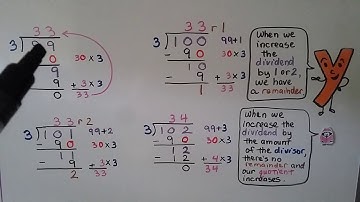 33
3)99
0
9
30×3
- 9 + 3×3
0 33
33 r 1
3)100 99+1
- 90 30×3
10
- 9 + 3×3
1 33
When we
increase
the
dividend
by 1 or 2,
we have
a remainder.
33 r 2
3)101 99+2
- 90 30×3
11
- 9 + 3×3
2 33
34
3)102 99+3
- 90 30×3
12
- 12 + 4×3
0 34
When we
increase the
dividend by
the amount
of the divisor,
there's no
remainder and
our quotient
increases.